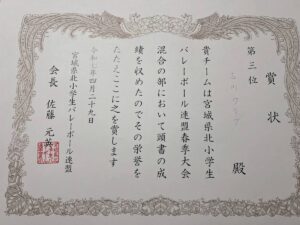 賞状
第三位
殿
貴チームは宮城県北小学生
バレーボール連盟春季大会
混合の部において頭書の成
績を収めたのでその栄誉を
たたえここに之を賞します
令和七年四月二十九日
宮城県北小学生バレーボール連盟
会長 佐藤元英